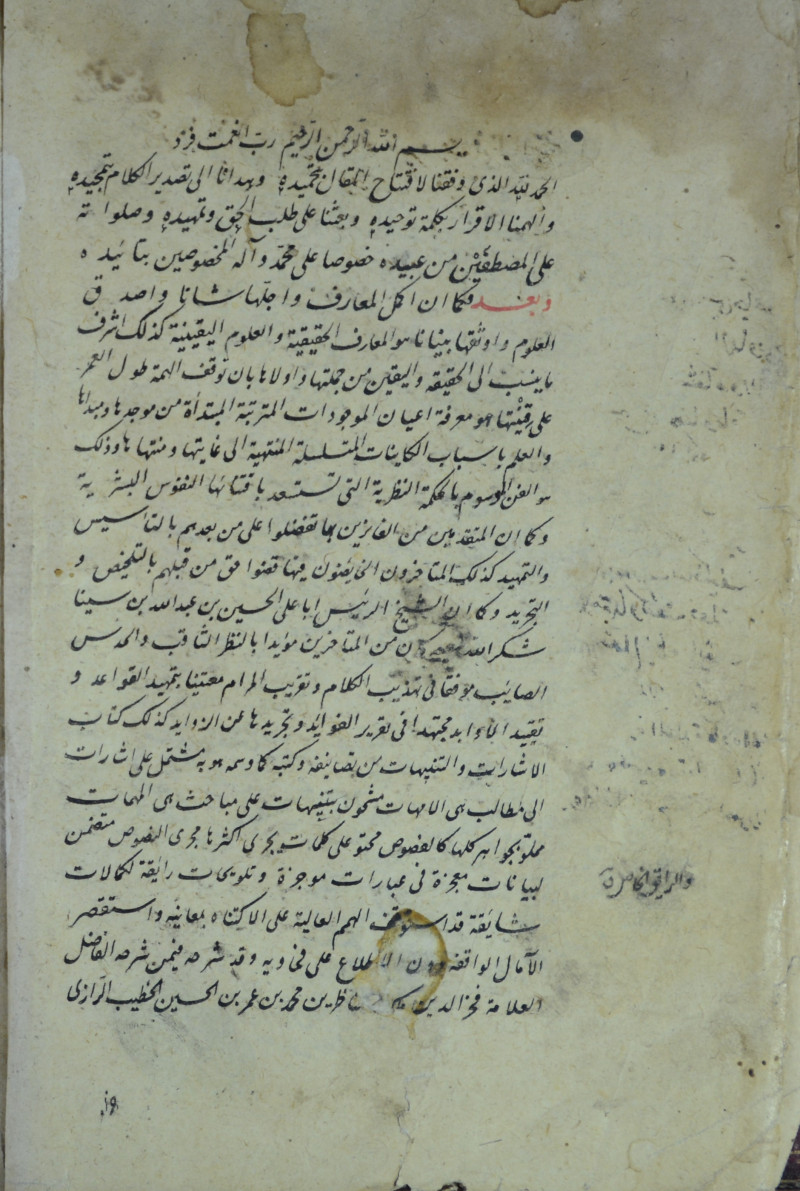 بسم الله الرحمن الرحيم رب انعمت فزد
الحمد لله الذي وفقنا لافتتاح المقال بتحميده وهدانا الى تصدير الكلام بتمجيده
والهمنا الاقرار بكلمة توحيده وبعثنا على طلب الحق وتمهيده وصلواته
على المصطفين من عبيده خصوصا على محمد وآله المخصوصين بتائيده
وبعد فكما ان اكمل المعارف واجلها شانا واصدق
العلوم واوثقها بنيانا هو المعارف الحقيقية والعلوم اليقينية كذلك اشرف
ما ينسب الى الحقيقه واليقين من جملتها واولاها بان توقف الهمة طول العمر
على قنيتها هو معرفة اعيان الموجودات المترتبة المبتدأة من موجدها ومبداها
والعلم باسباب الكاينات المتسلسلة المنتهية الى غايتها ومنتهاها وذلك
هو الفن الموسوم بالحكمة النظرية التي تستعد باقتنائها النفوس البشرية
وكما ان المتقدمين من الفائزين بها تفضلوا على من بعدهم بالتاسيس
والتمهيد كذلك المتاخرون الخايضون فيها قضوا حق من قبلهم بالتلخيص و
التجريد وكما ان الشيخ الرئيس ابا على الحسين بن عبد الله بن سينا
شكر الله سعيه كان من المتاخرين مؤيدا بالنظر الثاقب والحدس
الصائب موفقا في تهذيب الكلام وتقريب المرام معتنيا بتمهيد القواعد و
تقييد الاوابد مجتهدا في تقرير الفوائد وتجريدها عن الزوايد كذلك كتاب
الاشارات والتنبيهات من تصانيفه وكتبه كما وسمه هو به مشتمل على اشارات
الى مطالب هي الامهات مشحون بتنبيهات على مباحث هي المهمات
مملو بجواهر كلها كالفصوص محتو على كلمات يجرى اكثرها مجرى النصوص متضمن
لبيانات معجزة في عبارات موجزة وتلويحات رايقة لكمالات
شايقة قد استوقف الهمم العالية على الاكتناه بمعانيه واستقصر
الآمال الواقفة دون الاطلاع على فحاويه وقد شرحه فيمن شرحه الفاضل
العلامة فخر الدين ملك المناظرين محمد بن عمر بن الحسين الخطيب الرازي